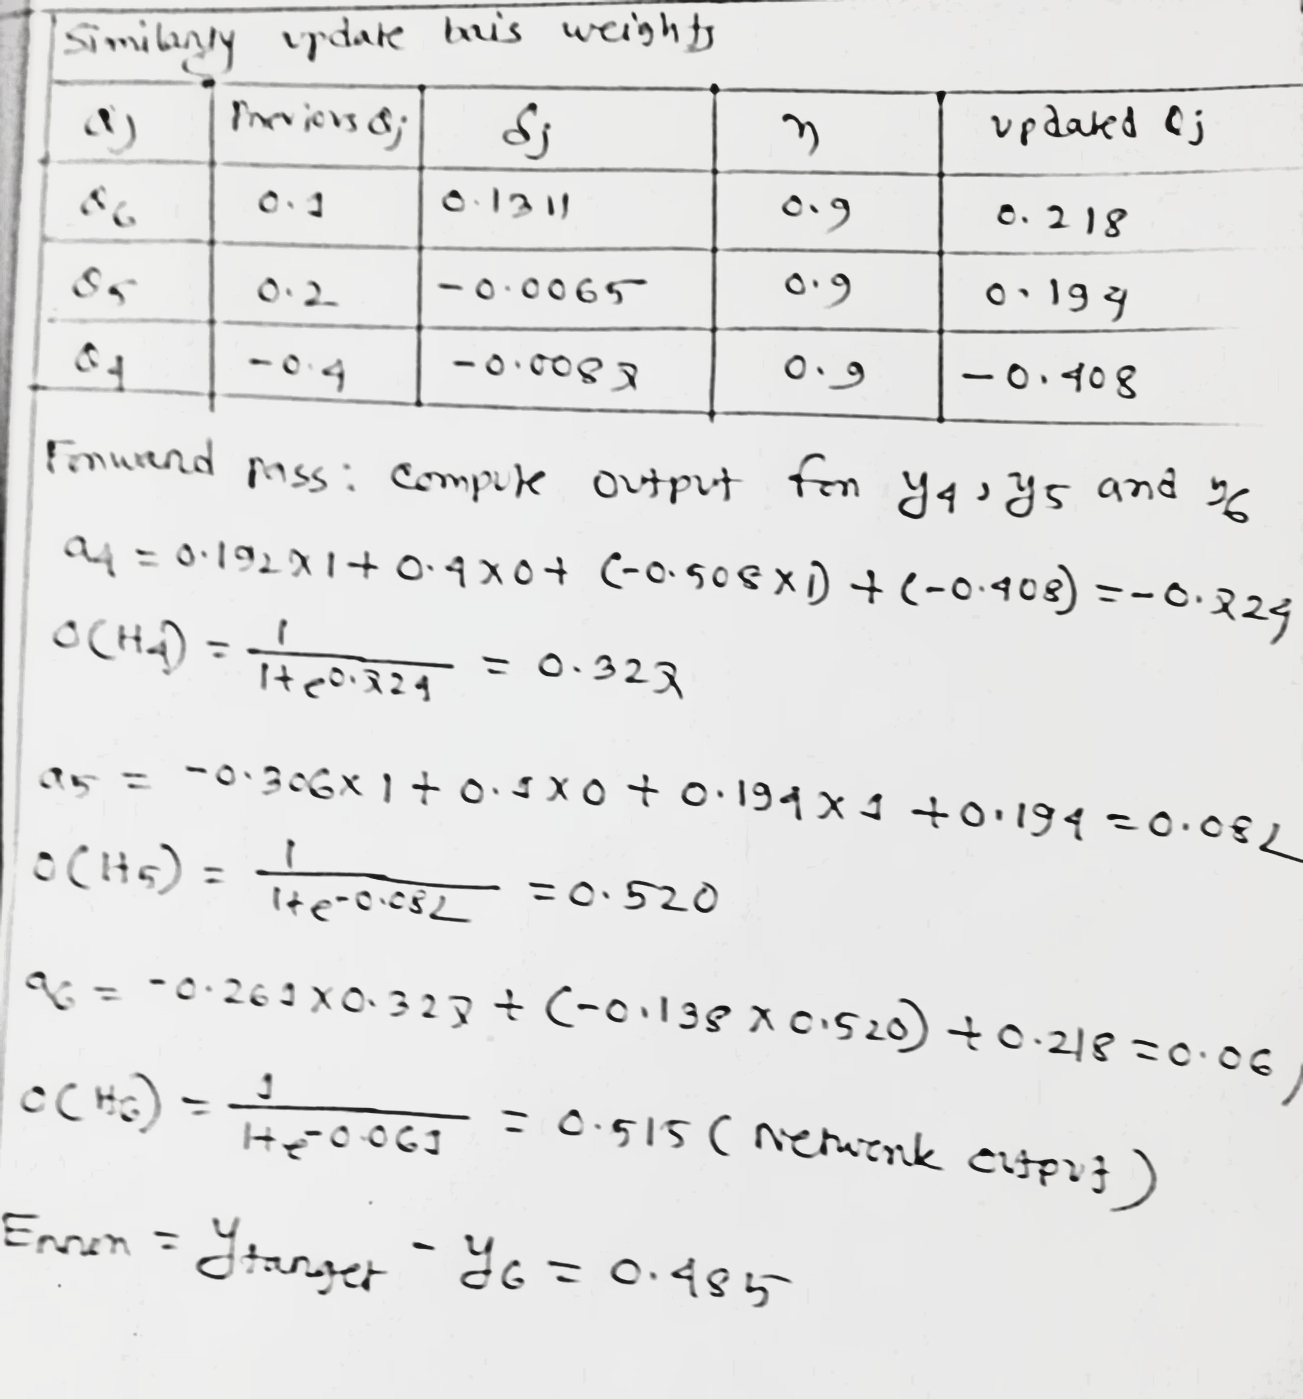 Similarly update bais weights
θj Previous θj δj η updated θj
θ6 0.1 0.1311 0.9 0.218
θ5 0.2 -0.0065 0.9 0.194
θ4 -0.4 -0.0087 0.9 -0.408
Forward pass: compute output for y4, y5 and y6
a4 = 0.192 x 1 + 0.4 x 0 + (-0.508 x 1) + (-0.408) = -0.724
O(H4) = 1/(1+e^0.724) = 0.327
a5 = -0.306 x 1 + 0.1 x 0 + 0.194 x 1 + 0.194 = 0.082
O(H5) = 1/(1+e^-0.082) = 0.520
a6 = -0.261 x 0.327 + (-0.138 x 0.520) + 0.218 = 0.061
O(H6) = 1/(1+e^-0.061) = 0.515 (Network output)
Error = ytarget - y6 = 0.485